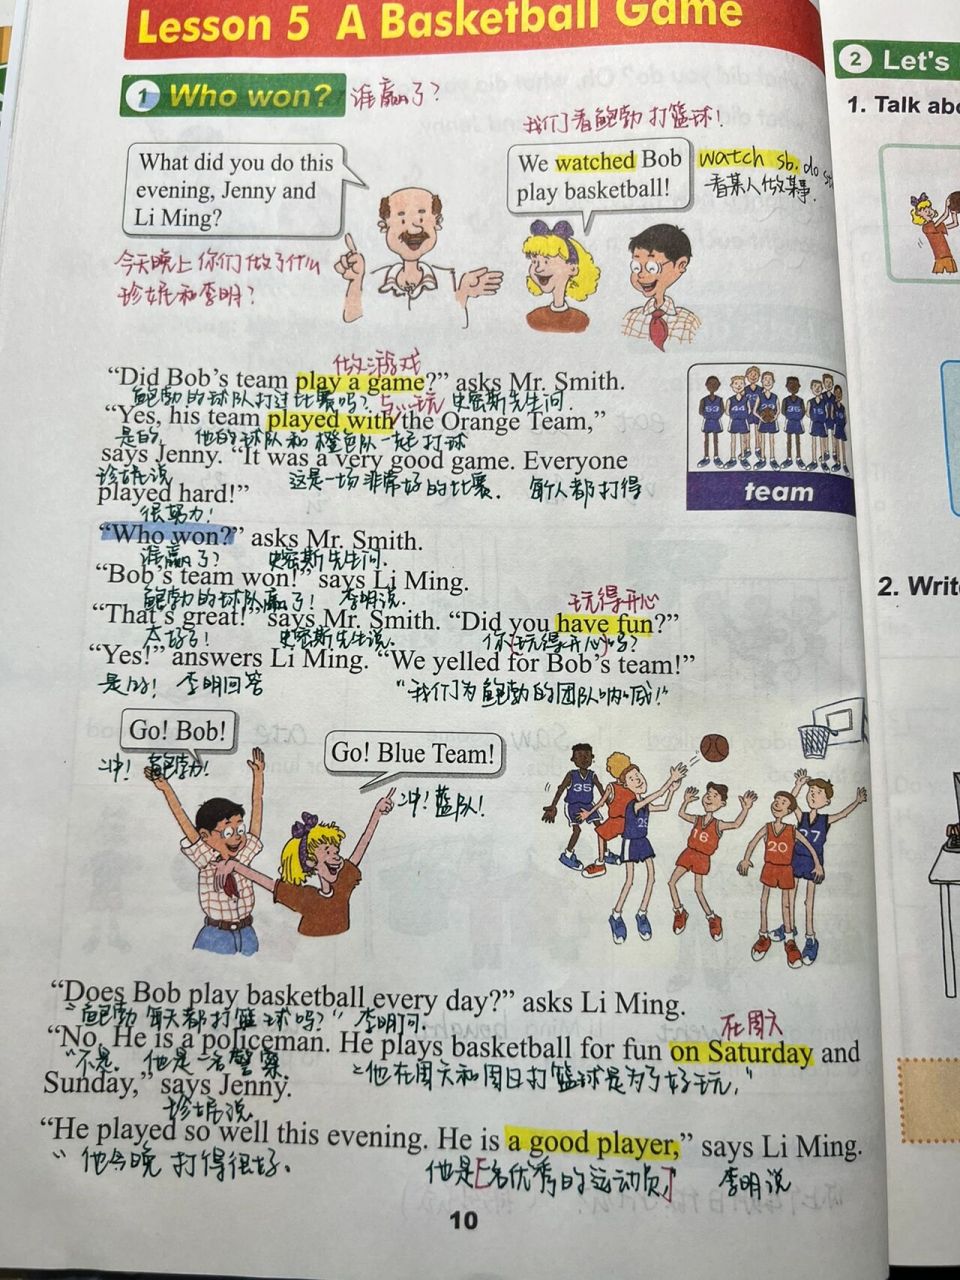 Lesson 5 A Basketball Game
1 Who won? 谁赢了?
我们看鲍勃打篮球!
What did you do this
evening, Jenny and
Li Ming?
今天晚上你们做了什么
珍妮和李明?
We watched Bob
play basketball!
watch sb. do st
看某人做某事.
做游戏
“Did Bob’s team play a game?” asks Mr. Smith.
鲍勃的球队打过比赛吗? 与…玩 史密斯先生问.
“Yes, his team played with the Orange Team,”
是的, 他的球队和橙色队一起打球
says Jenny. “It was a very good game. Everyone
珍妮说 这是一场非常好的比赛. 每个人都打得
played hard!”
很努力!
“Who won?” asks Mr. Smith.
谁赢了? 史密斯先生问.
“Bob’s team won!” says Li Ming.
鲍勃的球队赢了! 李明说.
玩得开心
“That’s great!” says Mr. Smith. “Did you have fun?”
太好了! 史密斯先生说. 你(玩得开心)吗?
“Yes!” answers Li Ming. “We yelled for Bob’s team!”
是的! 李明回答 “我们为鲍勃的团队呐喊!”
team
53
44
35
15
Go! Bob!
冲! 鲍勃!
Go! Blue Team!
冲! 蓝队!
35
16
20
27
“Does Bob play basketball every day?” asks Li Ming.
“鲍勃每天都打篮球吗?” 李明问.
在周六
“No. He is a policeman. He plays basketball for fun on Saturday and
“不是. 他是一名警察. 他在周六和周日打篮球是为了好玩,”
Sunday,” says Jenny.
珍妮说.
“He played so well this evening. He is a good player,” says Li Ming.
“他今晚打得很好. 他是[名优秀的运动员] 李明说
10
2 Let's
1. Talk abo
2. Write